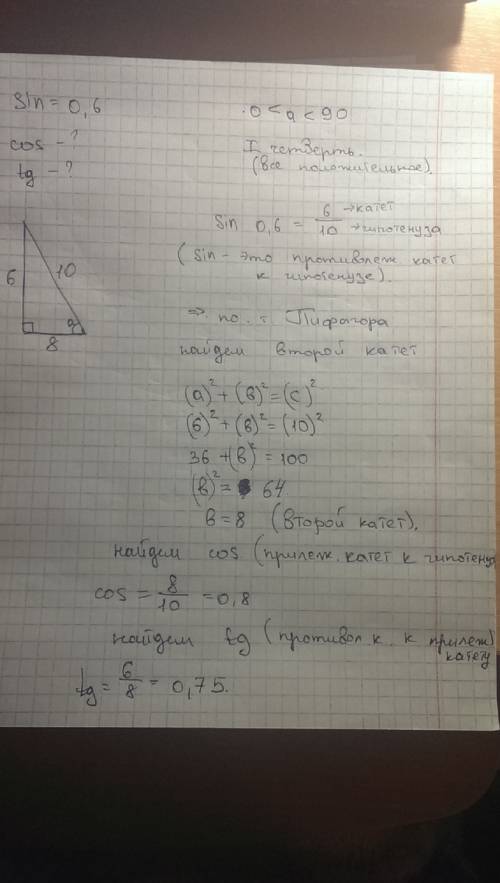 sin = 0,6
0 < a < 90
cos - ?
tg - ?
I четверть.
(все положительное).
sin 0,6 = 6/10 →катет →гипотенуза
(sin - это противолеж катет
к гипотенузе).
6
10
a
8
⇒ по т. Пифагора
найдем второй катет
(a)² + (в)² = (c)²
(6)² + (в)² = (10)²
36 + (в)² = 100
(в)² = 64
в = 8 (второй катет).
найдем cos (прилеж. катет к гипотенуз
cos = 8/10 = 0,8
найдем tg (противол к. к прилеж)
катету
tg = 6/8 = 0,75.